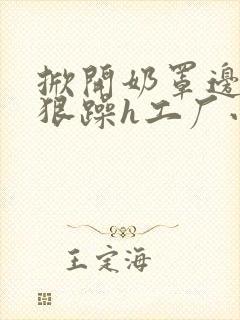 掀開奶罩邊
狠躁h工厂
王定海